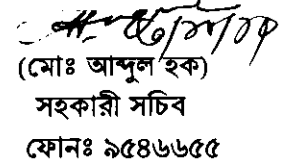 (মোঃ আব্দুল হক)
সহকারী সচিব
ফোনঃ ৯৫৪৬৬৫৫